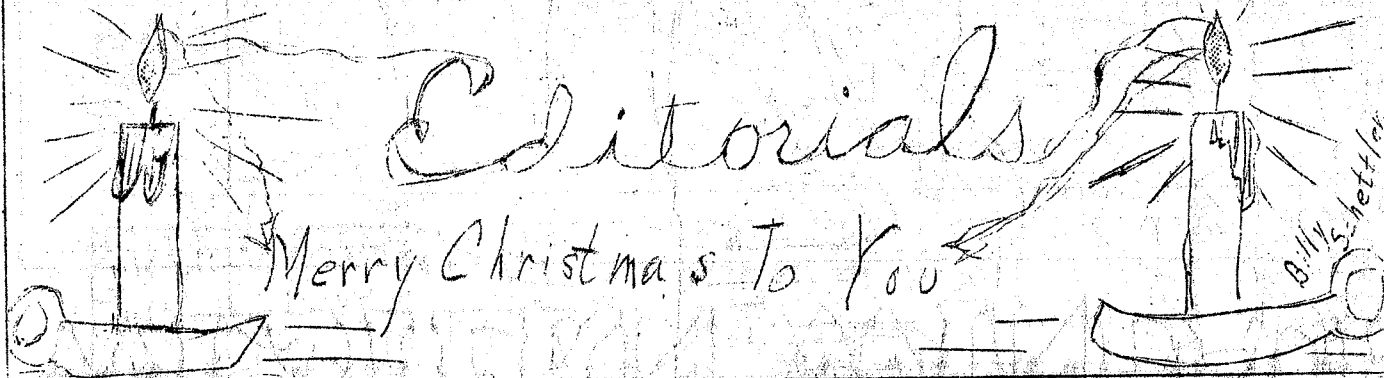 Editorials
Merry Christmas To You
Billy Shettler